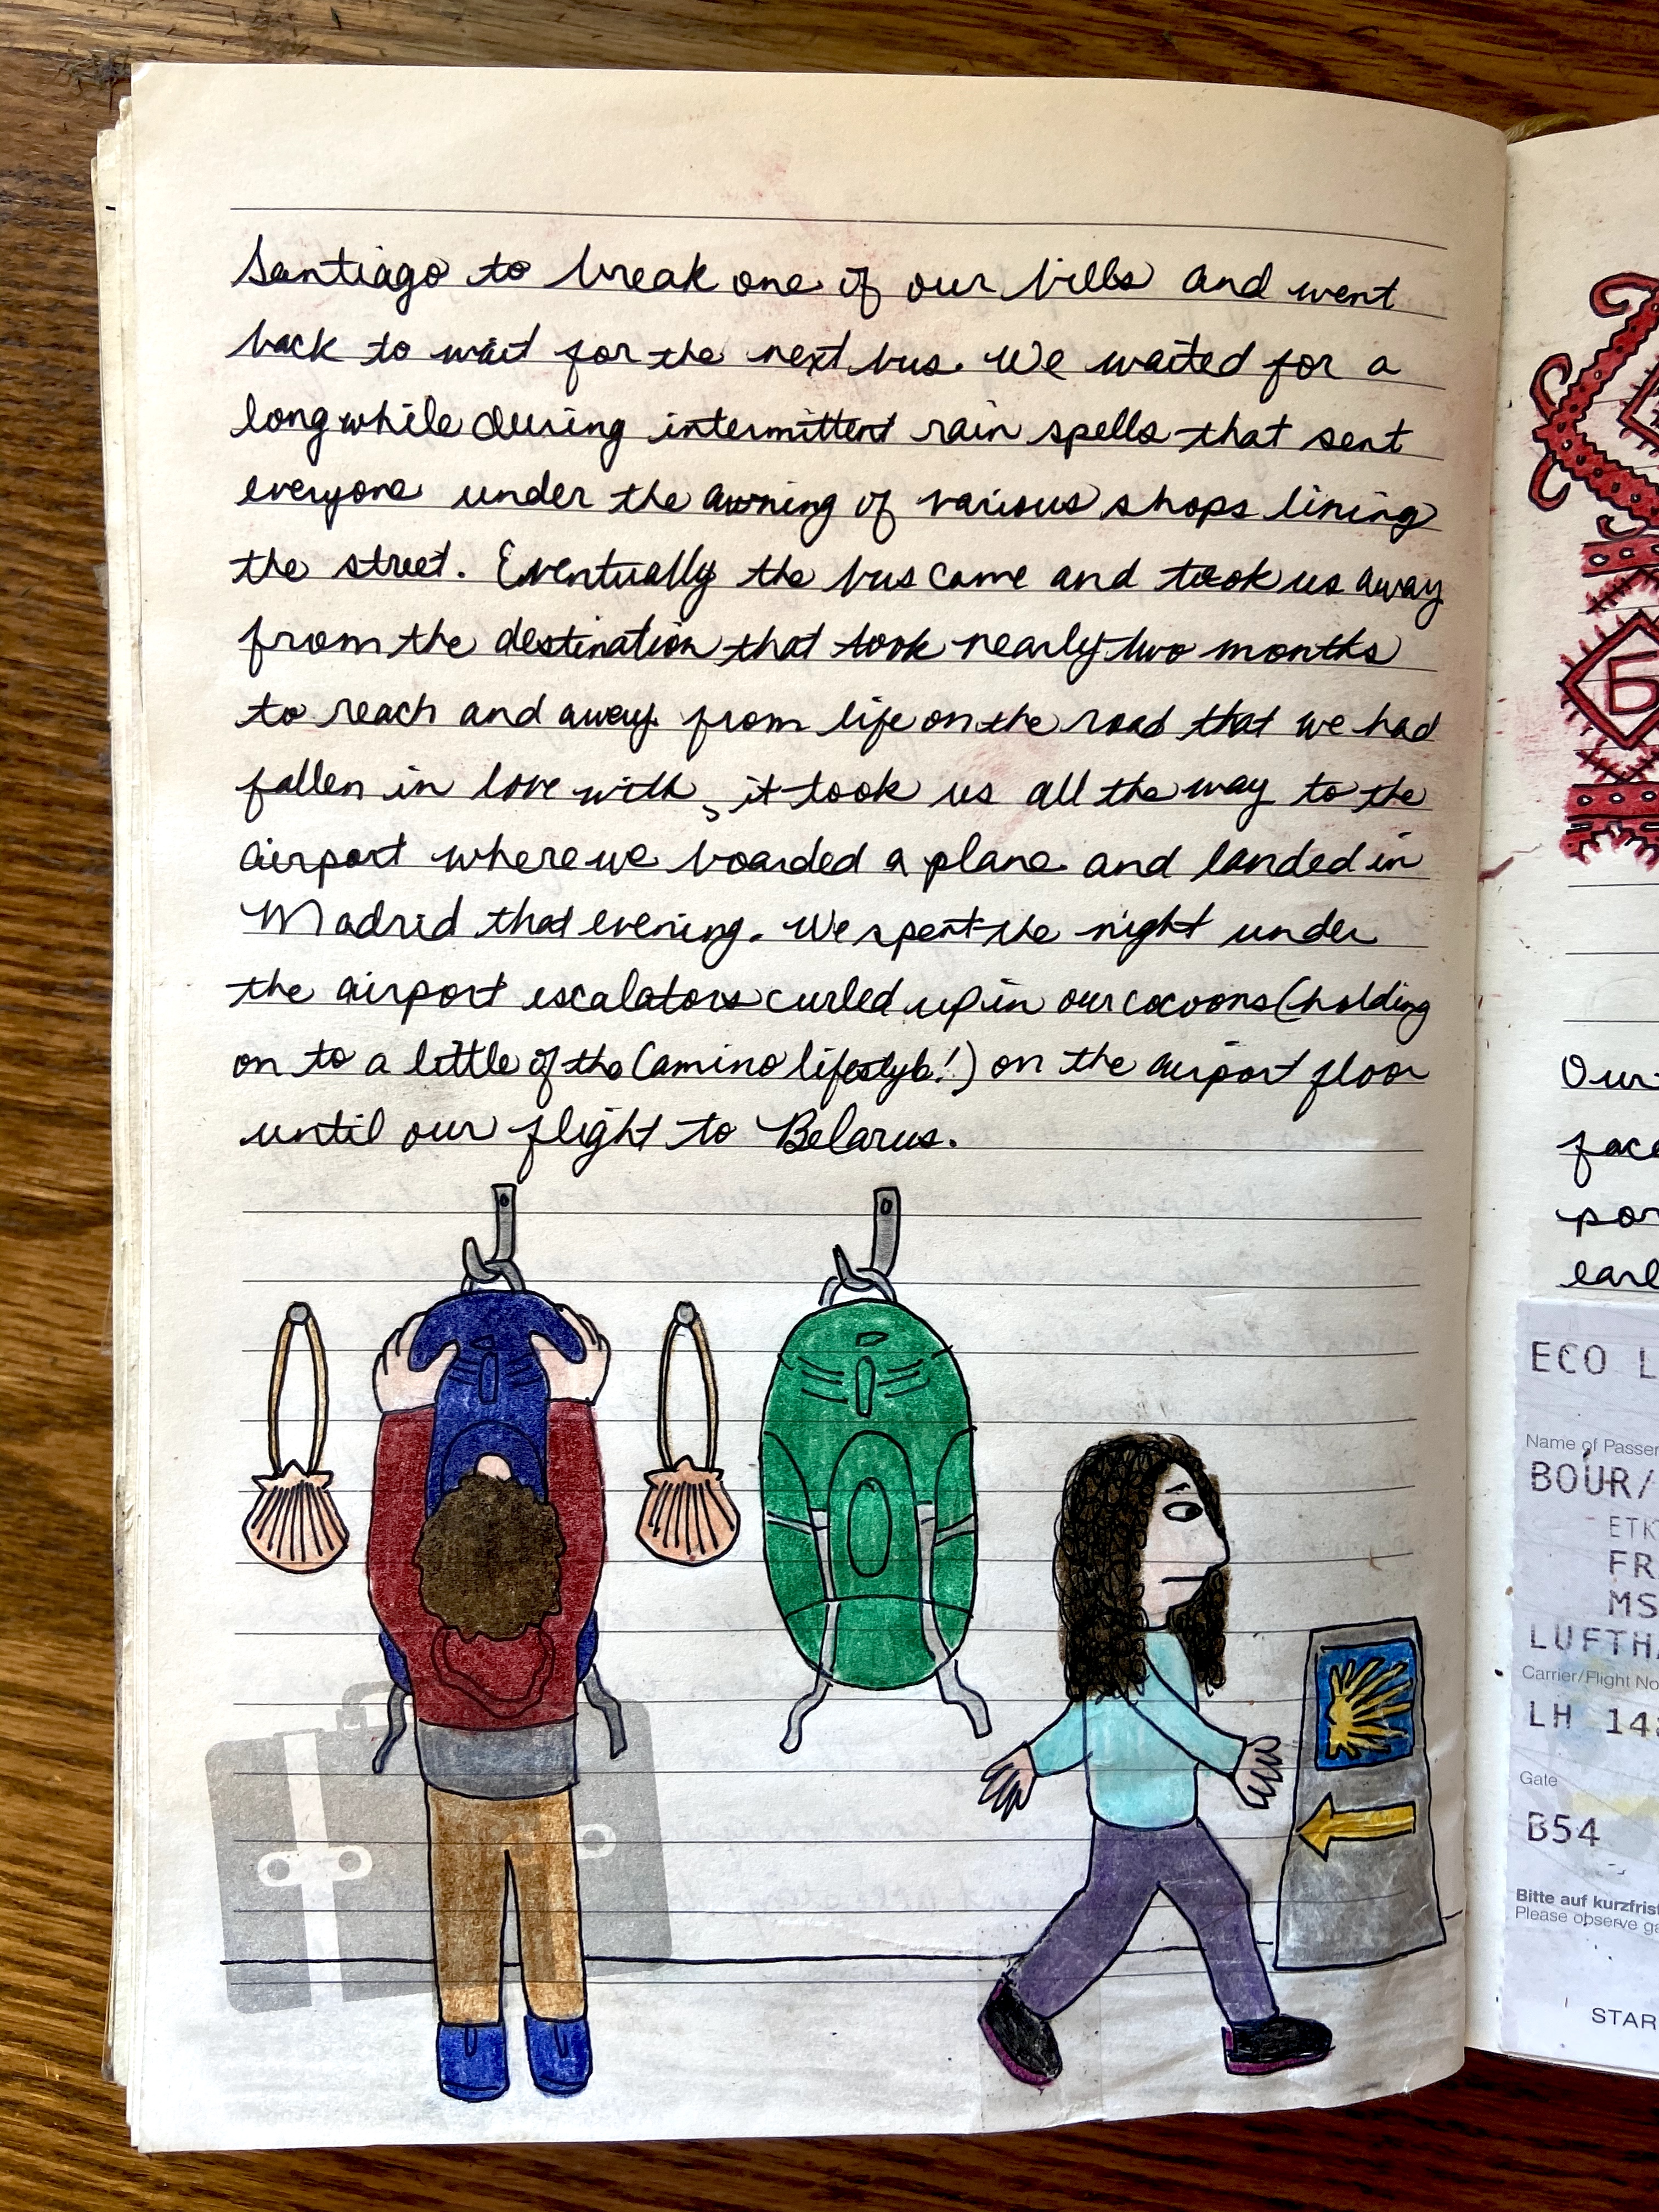 Santiago to break one of our bills and went
back to wait for the next bus. We waited for a
long while during intermittent rain spells that sent
everyone under the awning of various shops lining
the street. Eventually the bus came and took us away
from the destination that took nearly two months
to reach and away from life on the road that we had
fallen in love with, it took us all the way to the
airport where we boarded a plane and landed in
Madrid that evening. We spent the night under
the airport escalators curled up in our cocoons (holding
on to a little of the Camino lifestyle!) on the airport floor
until our flight to Belarus.
Б
Our
face
par
earl
ECO L
Name of Passen
BOUR/
ETK
FR
MS
LUFTHA
Carrier/Flight No
LH 148
Gate
B54
Bitte auf kurzfrist
Please observe ga
STAR